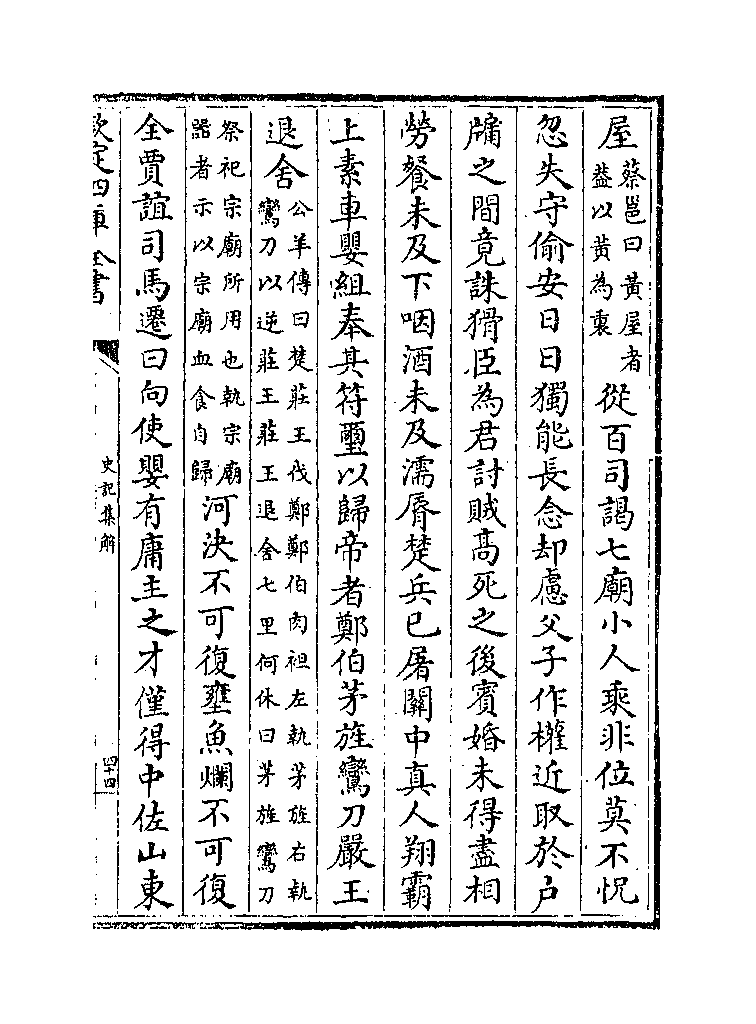 屋蔡邕曰黃屋者
葢以黃為裏從百司謁七廟小人乘非位莫不怳
忽失守偷安日日獨能長念却慮父子作權近取於户
牖之間竟誅猾臣為君討賊髙死之後賓婚未得盡相
勞餐未及下咽酒未及濡脣楚兵已屠關中真人翔霸
上素車嬰組奉其符璽以歸帝者鄭伯茅旌鸞刀嚴王
退舍公羊傳曰楚莊王伐鄭鄭伯肉袒左執茅旌右執
鸞刀以逆莊王莊王退舍七里何休曰茅旌鸞刀
祭祀宗廟所用也執宗廟
器者示以宗廟血食自歸河決不可復壅魚爛不可復
全賈誼司馬遷曰向使嬰有庸主之才僅得中佐山東
欽定四庫全書
史記集解
四十四